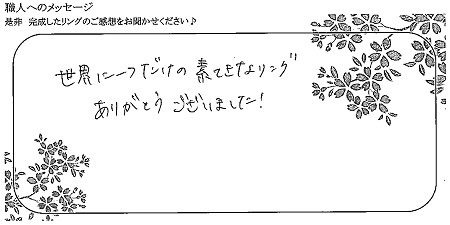 職人へのメッセージ
是非 完成したリングのご感想をお聞かせください♪
世界に一つだけの素てきなリング
ありがとうございました!